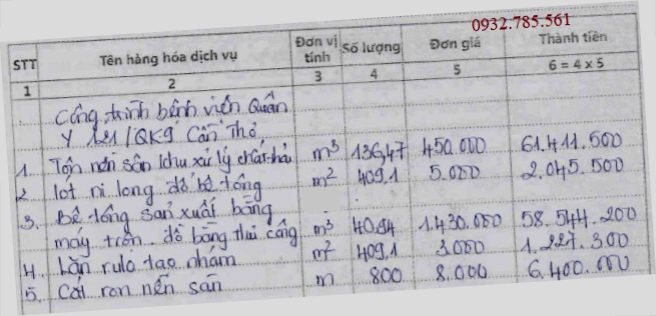 0932.785.561
STT Tên hàng hóa dịch vụ Đơn vị tính Số lượng Đơn giá Thành tiền
1 2 3 4 5 6 = 4 x 5
Công trình bệnh viện Quân
Y 121/QK9 Cần Thơ
1. Tôn nền sân khu xử lý chất thải m³ 136,47 450.000 61.411.500
2 lót ni long đổ bê tông m² 409,1 5.000 2.045.500
3. Bê tông sản xuất bằng
máy trộn đổ bằng thủ công m³ 40.94 1.430.000 58.544.200
4. Lăn rulo tạo nhám m² 409,1 3.000 1.227.300
5. Cắt ron nền sân m 800 8.000 6.400.000